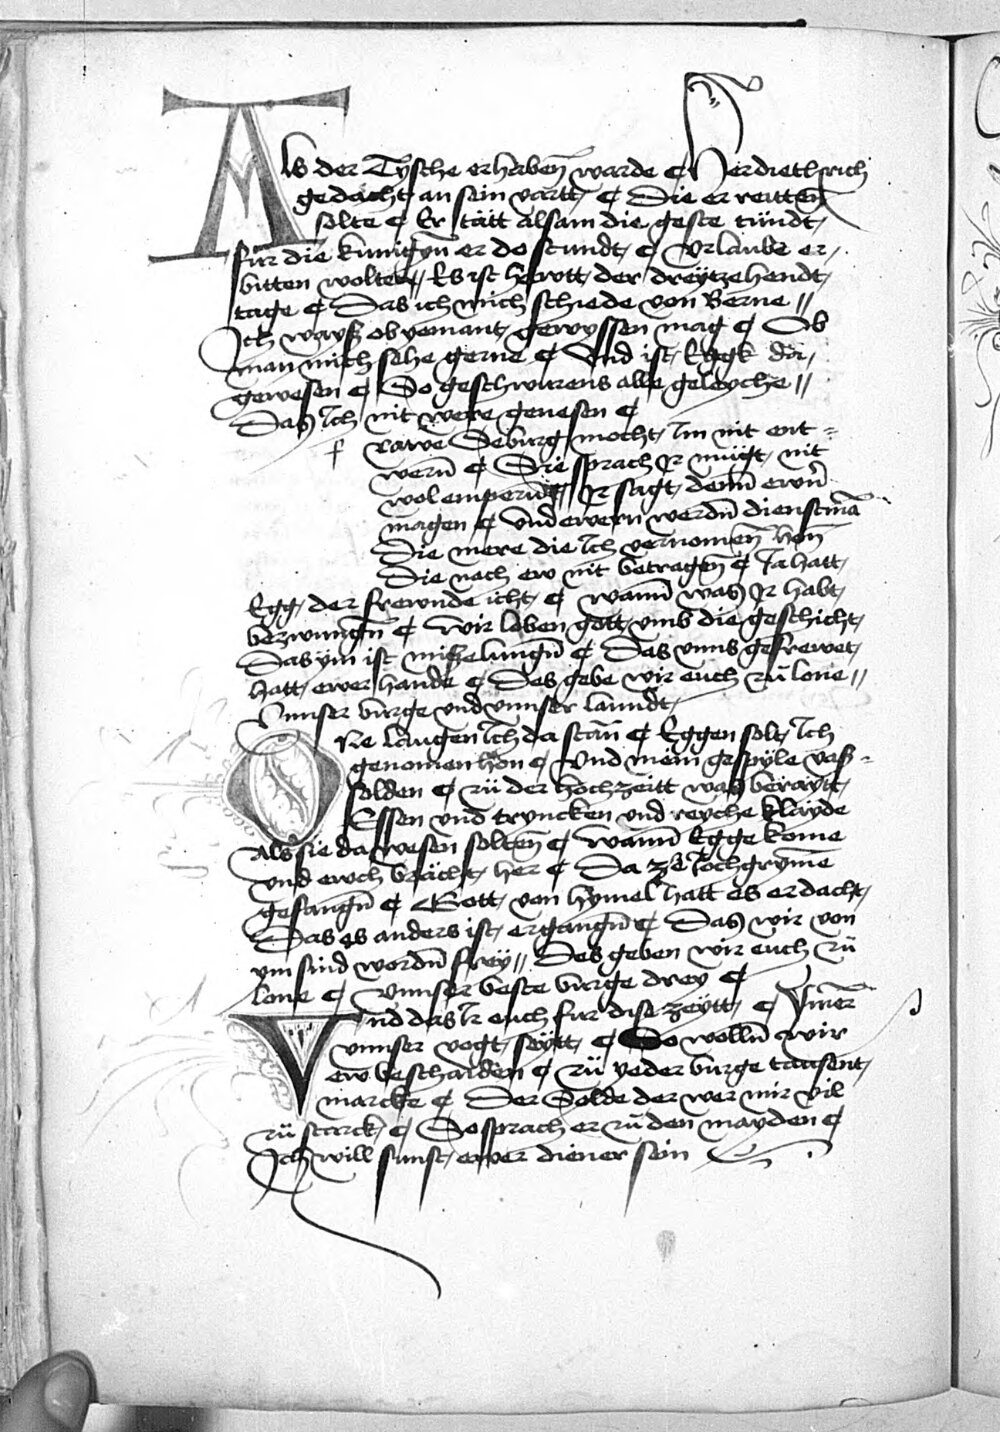 Als der Tysche erhaben̄ warde ¶ Herdietherich
gedacht an sein vartt ¶ Die er reittē
solte ¶ Er tätt alsam die geste tündt
für die kunigyn̄ er do stundt ¶ Vrlaube er
bitten wolte // Es ist hewtt der dreytzehendt
tage ¶ Das ich mich schiede von Berne //
Ich wayß ob yemant gewyssen mag ¶ Ob
man mich sehe gerne ¶ Vnd ist Eggk da
gewesen ¶ So geschwurens alle geleyche //
Das Ich nit were genesen ¶
f rawe Seburg mocht Im nit ent
wern̄ ¶ Sie sprach Ir mügt nit
wol empern̄ // Ir sagt denn̄ ewrn̄
magen ¶ Vnd ewern werdn̄ dienstmā
Die mere die Ich vernomen̄ hon̄
Die nach ew nit betragen̄ ¶ Ia hatt
Egg der frewnde icht ¶ Wann̄ was Ir habt
bezwungn̄ ¶ Wir loben gott vmb die geschicht
Das ym ist mißelungn̄ ¶ Das vnns gefrewet
hatt ewer hande ¶ Des gebe wir euch zū lone //
Vnnser burge vnd vnnser lanndt
One laugen Ich da stan̄ ¶ Eggen solt Ich
genomen hon ¶ Vnd mein gespyle vaß
solden ¶ zū der hochzeitt was berayit
Essen vnd tryncken vnd reyche klayde
Als sie da wesen solten̄ ¶ Wann̄ Egge kome
vnd ewch brächt her ¶ Da ze Iochgryme
gefangn̄ ¶ Gott von hymel hatt es erdacht
Das es anders ist ergangn̄ ¶ Das wir von
ym sind wordn̄ frey // Des geben wir euch zū
lone ¶ Vnnser beste burge drey ¶
Vnd das Ir euch für dise zeytt ¶ Ymēr
vnnser vogt seytt ¶ So wolln̄ wir
ew beschaiden ¶ zū yeder burge tausent
marcke ¶ Der Solde der wer mir vil
zū starck ¶ So sprach er zū den mayden ¶
Ich will sunst ewer diener sein